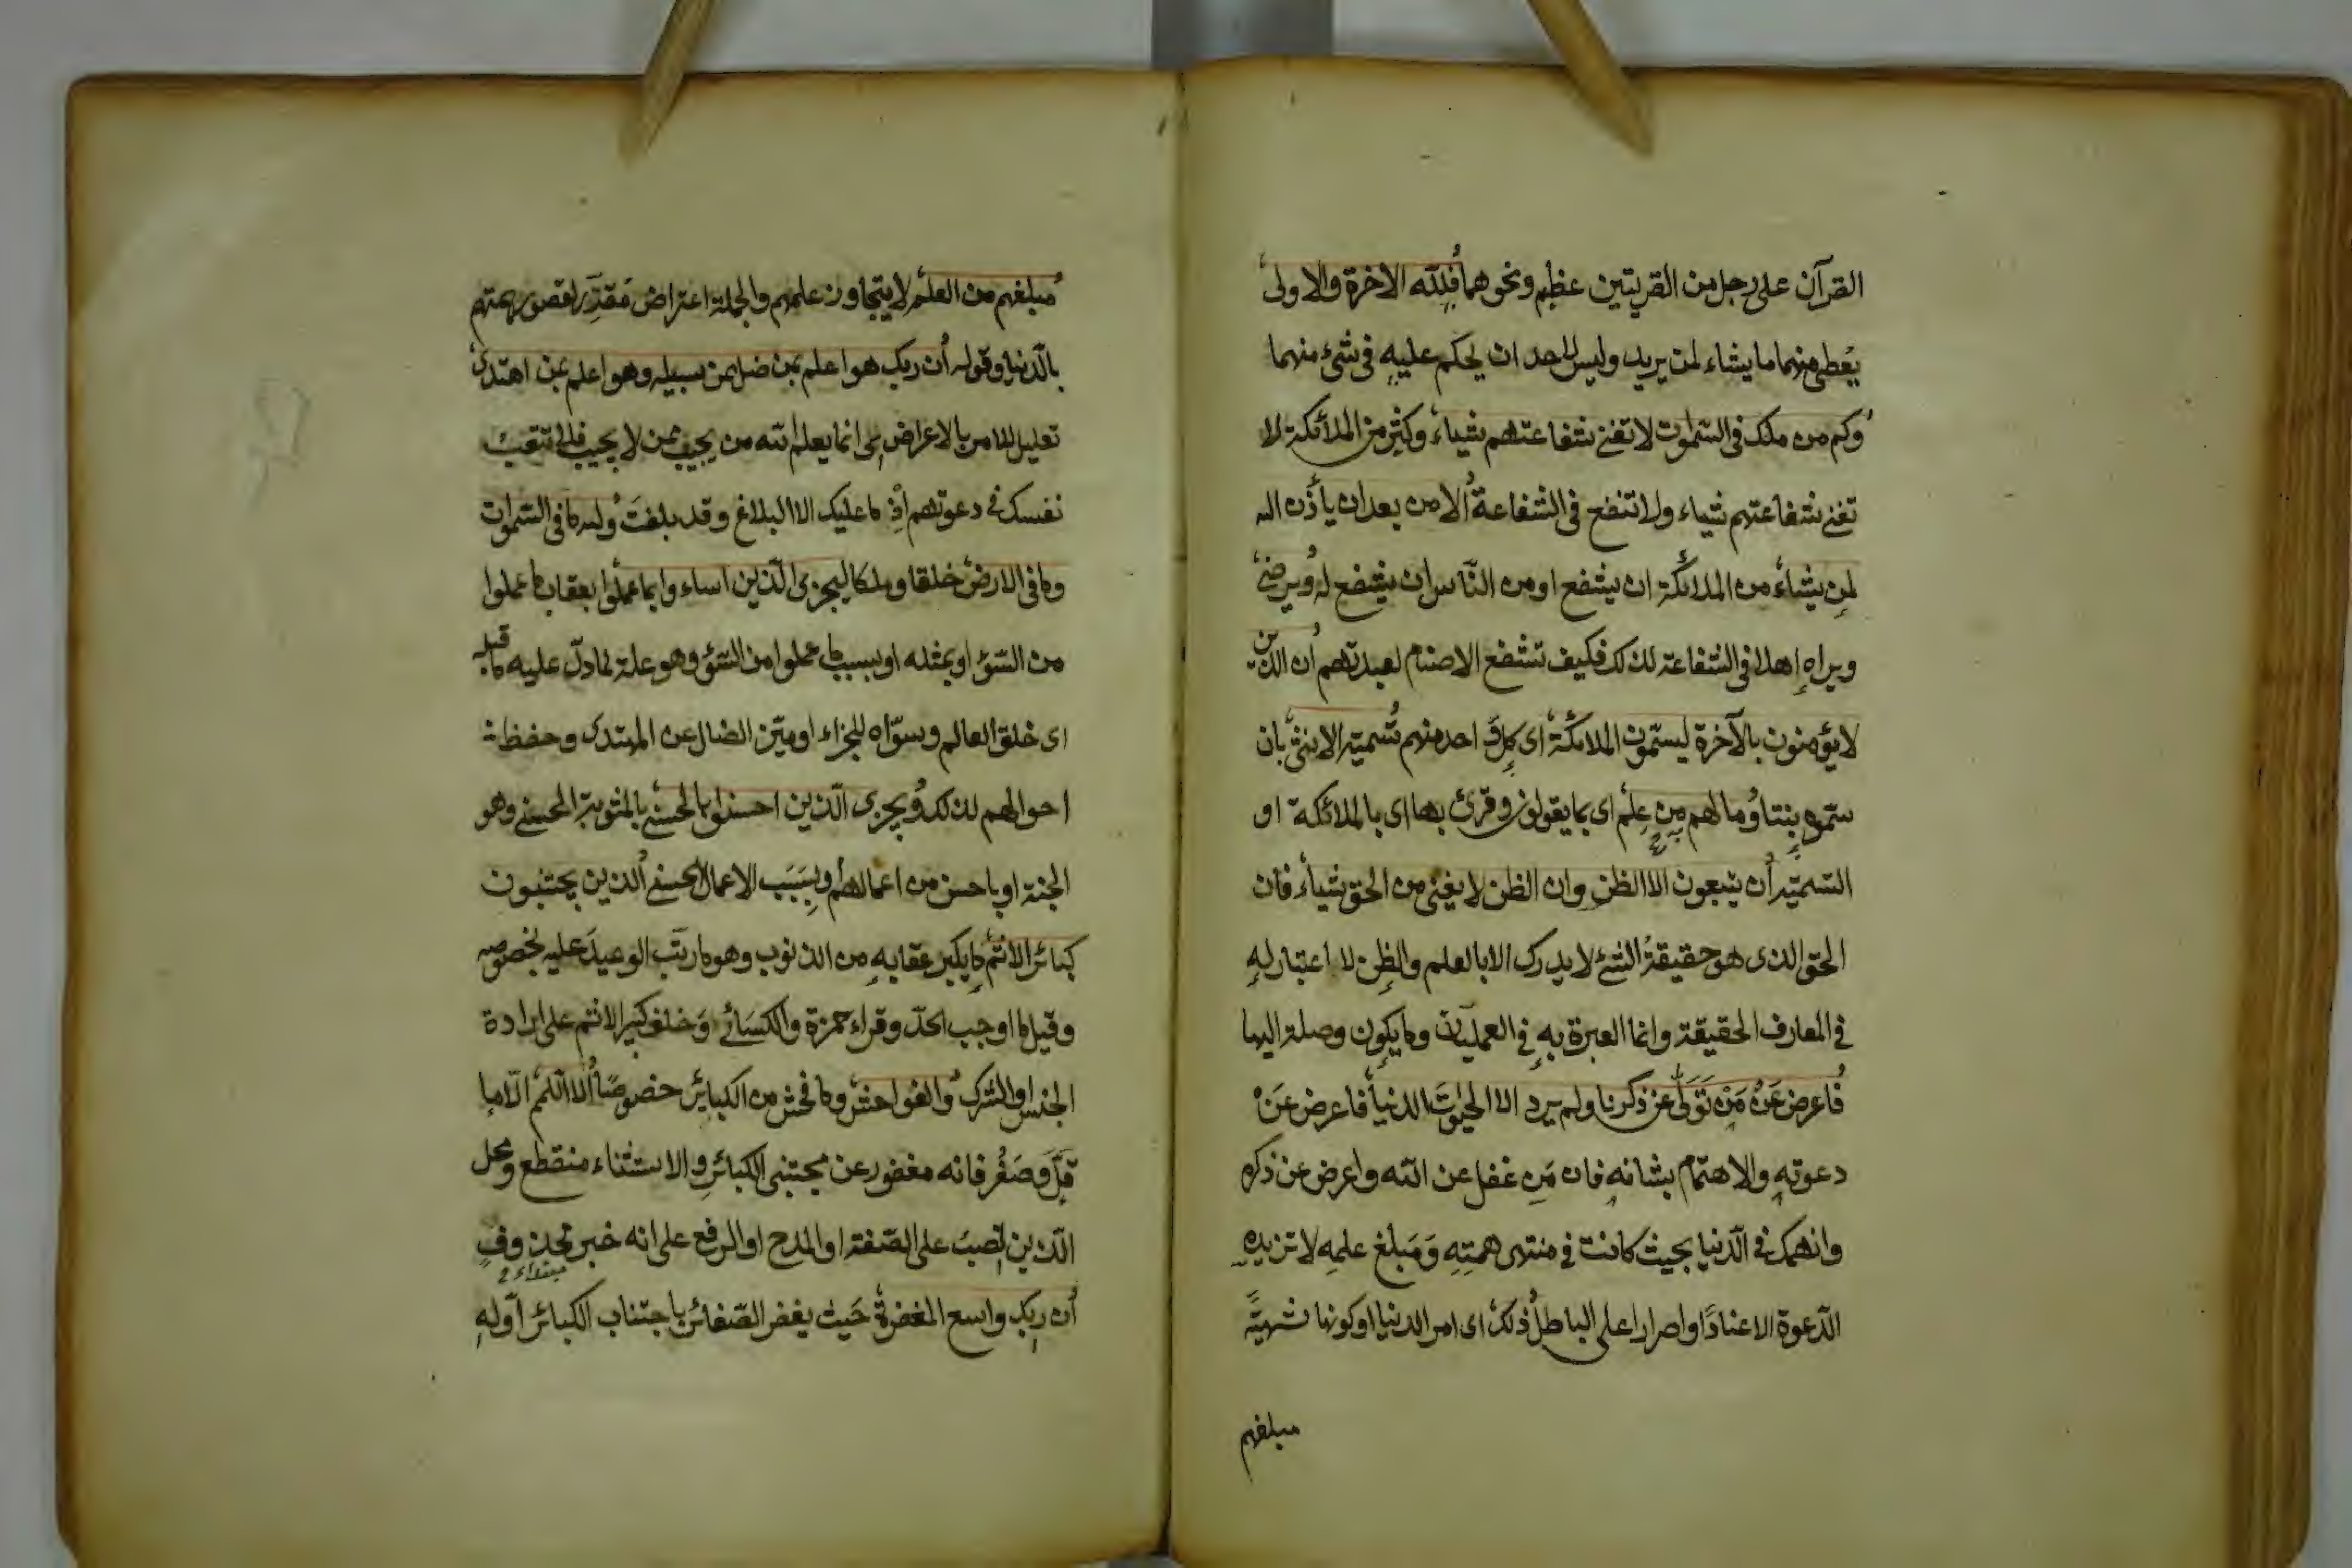 القرآن على رجل من القريتين عظيم ونحوهما فلله الآخرة والاولى
يعطى منهما ما يشاء لمن يريد وليس لاحد ان يحكم عليه فى شئ منهما
وكم من ملك فى السموات لا تغنى شفاعتهم شياء وكثير من الملائكة لا
تغنى شفاعتهم شياء ولا تنفع فى الشفاعة الا من بعد ان يأذن الله
لمن يشاء من الملائكة ان يشفع او من الناس ان يشفع له ويرضى
ويراه اهلا فى الشفاعة لذلك فكيف تشفع الاصنام لعبدتهم ان الذين
لا يؤمنون بالآخرة ليسمون الملائكة اى كل احد منهم تسمية الانثى بان
سموه بنتا وما لهم من علم اى بما يقولون وقرئ بها اى بالملائكة او
التسمية ان يتبعون الا الظن وان الظن لا يغنى من الحق شياء فان
الحق الذى هو حقيقة الشئ لا يدرك الا بالعلم والظن لا اعتبار له
فى المعارف الحقيقة وانما العبرة به فى العمليات وما يكون وصلة اليها
فاعرض عن من تولى عن ذكرنا ولم يرد الا الحيوة الدنيا فاعرض عن
دعوته والاهتمام بشانه فان من غفل عن الله واعرض عن ذكره
وانهمك فى الدنيا بحيث كانت فى منتهى همته ومبلغ علمه لا تزيده
الدعوة الا عنادا واصرارا على الباطل ذلك اى امر الدنيا او كونها شهية
مبلغهم
مبلغهم من العلم لا يتجاوزن علمهم والجملة اعتراض مقدر لقصور همتهم
بالدنيا وقوله ان ربك هو اعلم بمن ضل عن سبيله وهو اعلم بمن اهتدى
تعليل للامر بالاعراض اى انما يعلم الله من يجيب ممن لا يجيب فلا تتعب
نفسك فى دعوتهم اذ ما عليك الا البلاغ وقد بلغت ولله ما فى السموات
وما فى الارض خلقا وملكا ليجزى الذين اساء وا بما عملوا بعقاب ما عملوا
من السؤ او بمثله او بسبب ما عملوا من السؤ وهو علة لما دل عليه ما قبله
اى خلق العالم وسواه للجزاء او ميز الضال عن المهتدى وحفظ
احوالهم لذلك ويجزى الذين احسنوا بالحسنى بالمثوبة الحسنى وهو
الجنة او باحسن من اعمالهم او بسبب الاعمال الحسنى الذين يجتنبون
كبائر الاثم ما يكبر عقابه من الذنوب وهو ما رتب الوعيد عليه بخصوصه
وقيل ما اوجب الحد وقراء حمزة والكسائى وخلف كبير الاثم على ارادة
الجنس او الشرك والفواحش وما فحش من الكبائر خصوصا الا اللمم الا ما
قل وصغر فانه مغفور عن مجتنبى الكبائر والاستثناء منقطع ومحل
الذين نصب على الصفة او المدح او الرفع على انه خبر محذوف
مبتداء
ان ربك واسع المغفرة حيث يغفر الصغائر باجتناب الكبائر او له